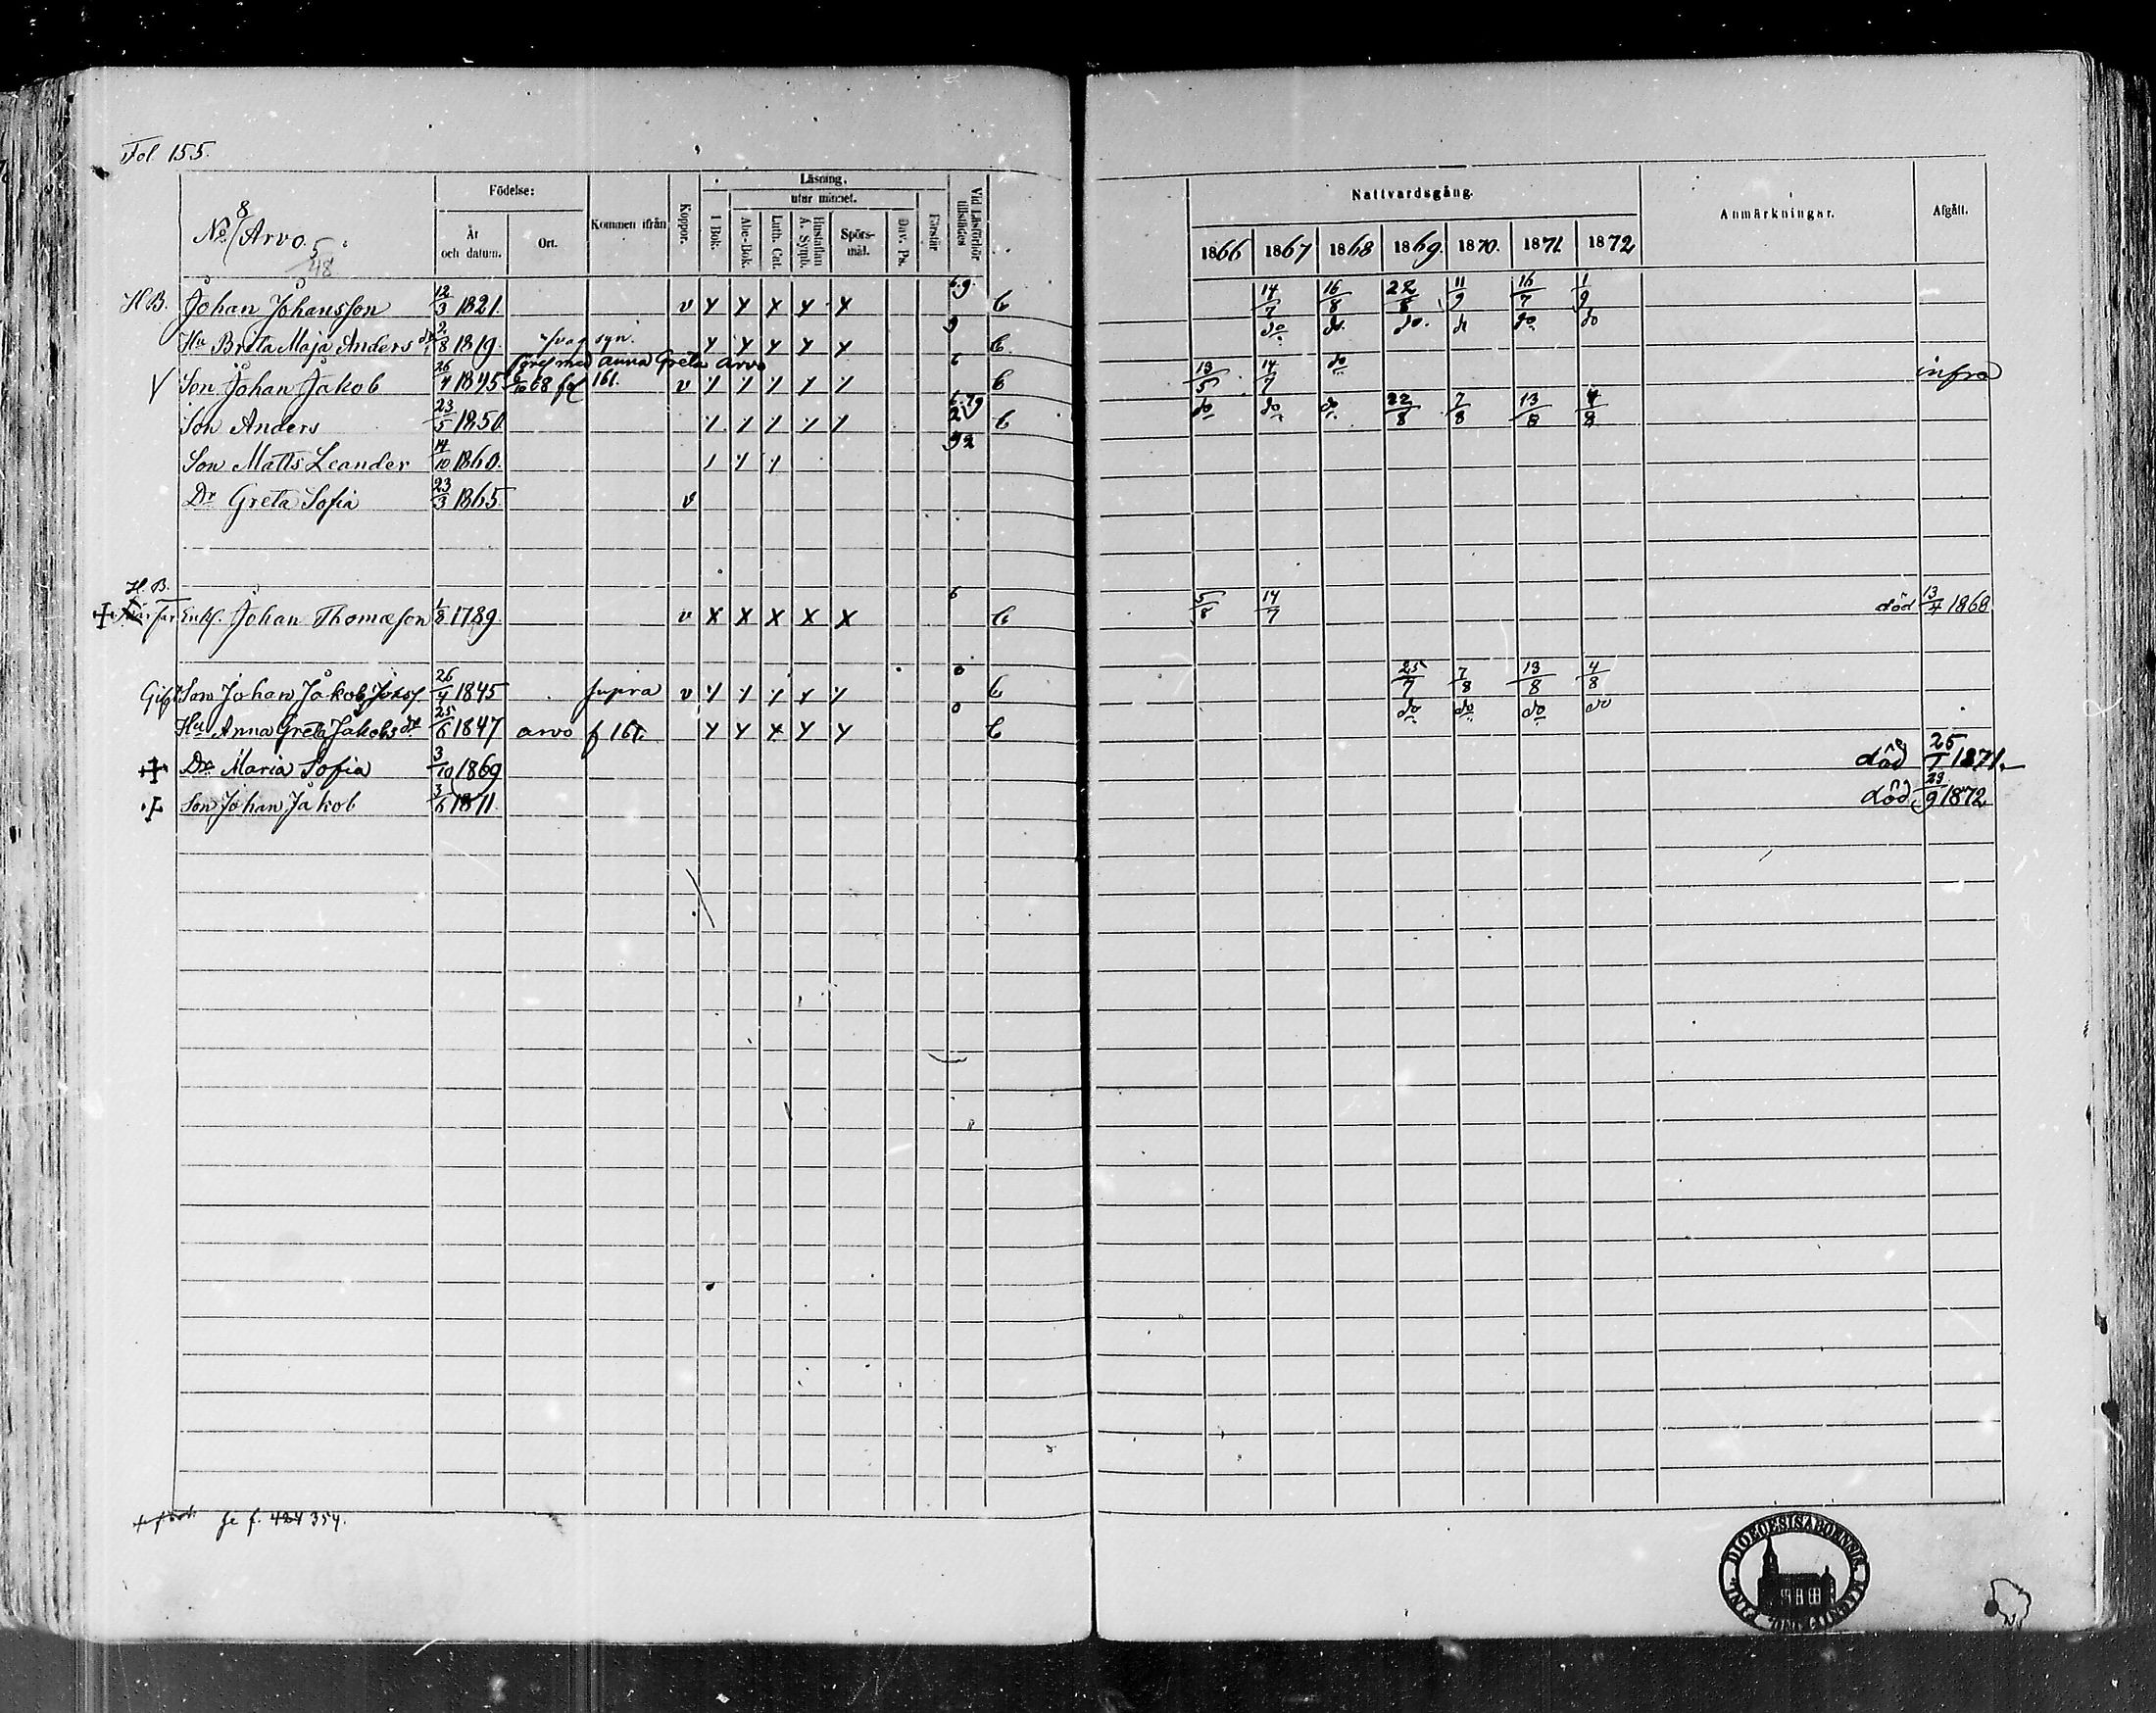 Fol. 155.
Födelse: Läsning, Nattvardsgång.
utur minnet.
8
No/Arvo. 5/48 År och datum. Ort. Kommen ifrån Koppor. I Bok. Abc-Bok. Luth. Cat. Hustaflan A. Symb. Spörsmål. Dav. Ps. Förstår Vid Läsförhör tillstädes 1866 1867 1868 1869. 1870. 1871. 1872 Anmärkningar. Afgått.
H.B. Johan Johansson 12/3 1821. v y y x y x 6.9 b 14/7 16/8 22/8 11/9 16/7 1/9
Hu Brita Maja Andersdr 2/8 1819. svag syn. y y y x y 9 b. do do do. do do do
förl med Anna Greta Arvo
V Son Johan Jakob 26/4 1845 6/10 68 fol 161. v 6 b 13/5 14/7 do infra
Son Anders 23/5 1850. b do do do 22/8 7/8 13/8 4/8
Son Matts Leander 14/10 1860. 92
Dr Greta Sofia 23/3 1865. v
H.B.
far Enkl. Johan Thomæson 1/8 1789 v x x x x x 6 b 5/8 14/7 död 13/4 1868
Gift Son Johan Jåkob Johss. 26/4 1845 supra v 0 b 25/7 7/8 13/8 4/8
Hu Anna Greta Jakobsdr 25/6 1847 arvo f 161. y y x y y 0 b do do do do
Dr Maria Sofia 3/10 1869 död 25/1 1871.
Son Johan Jåkob 3/6 1871. död 29/9 1872
se f. 424 354.
DIOECESIS ABOENSIS MAGNI DUC. FINL.